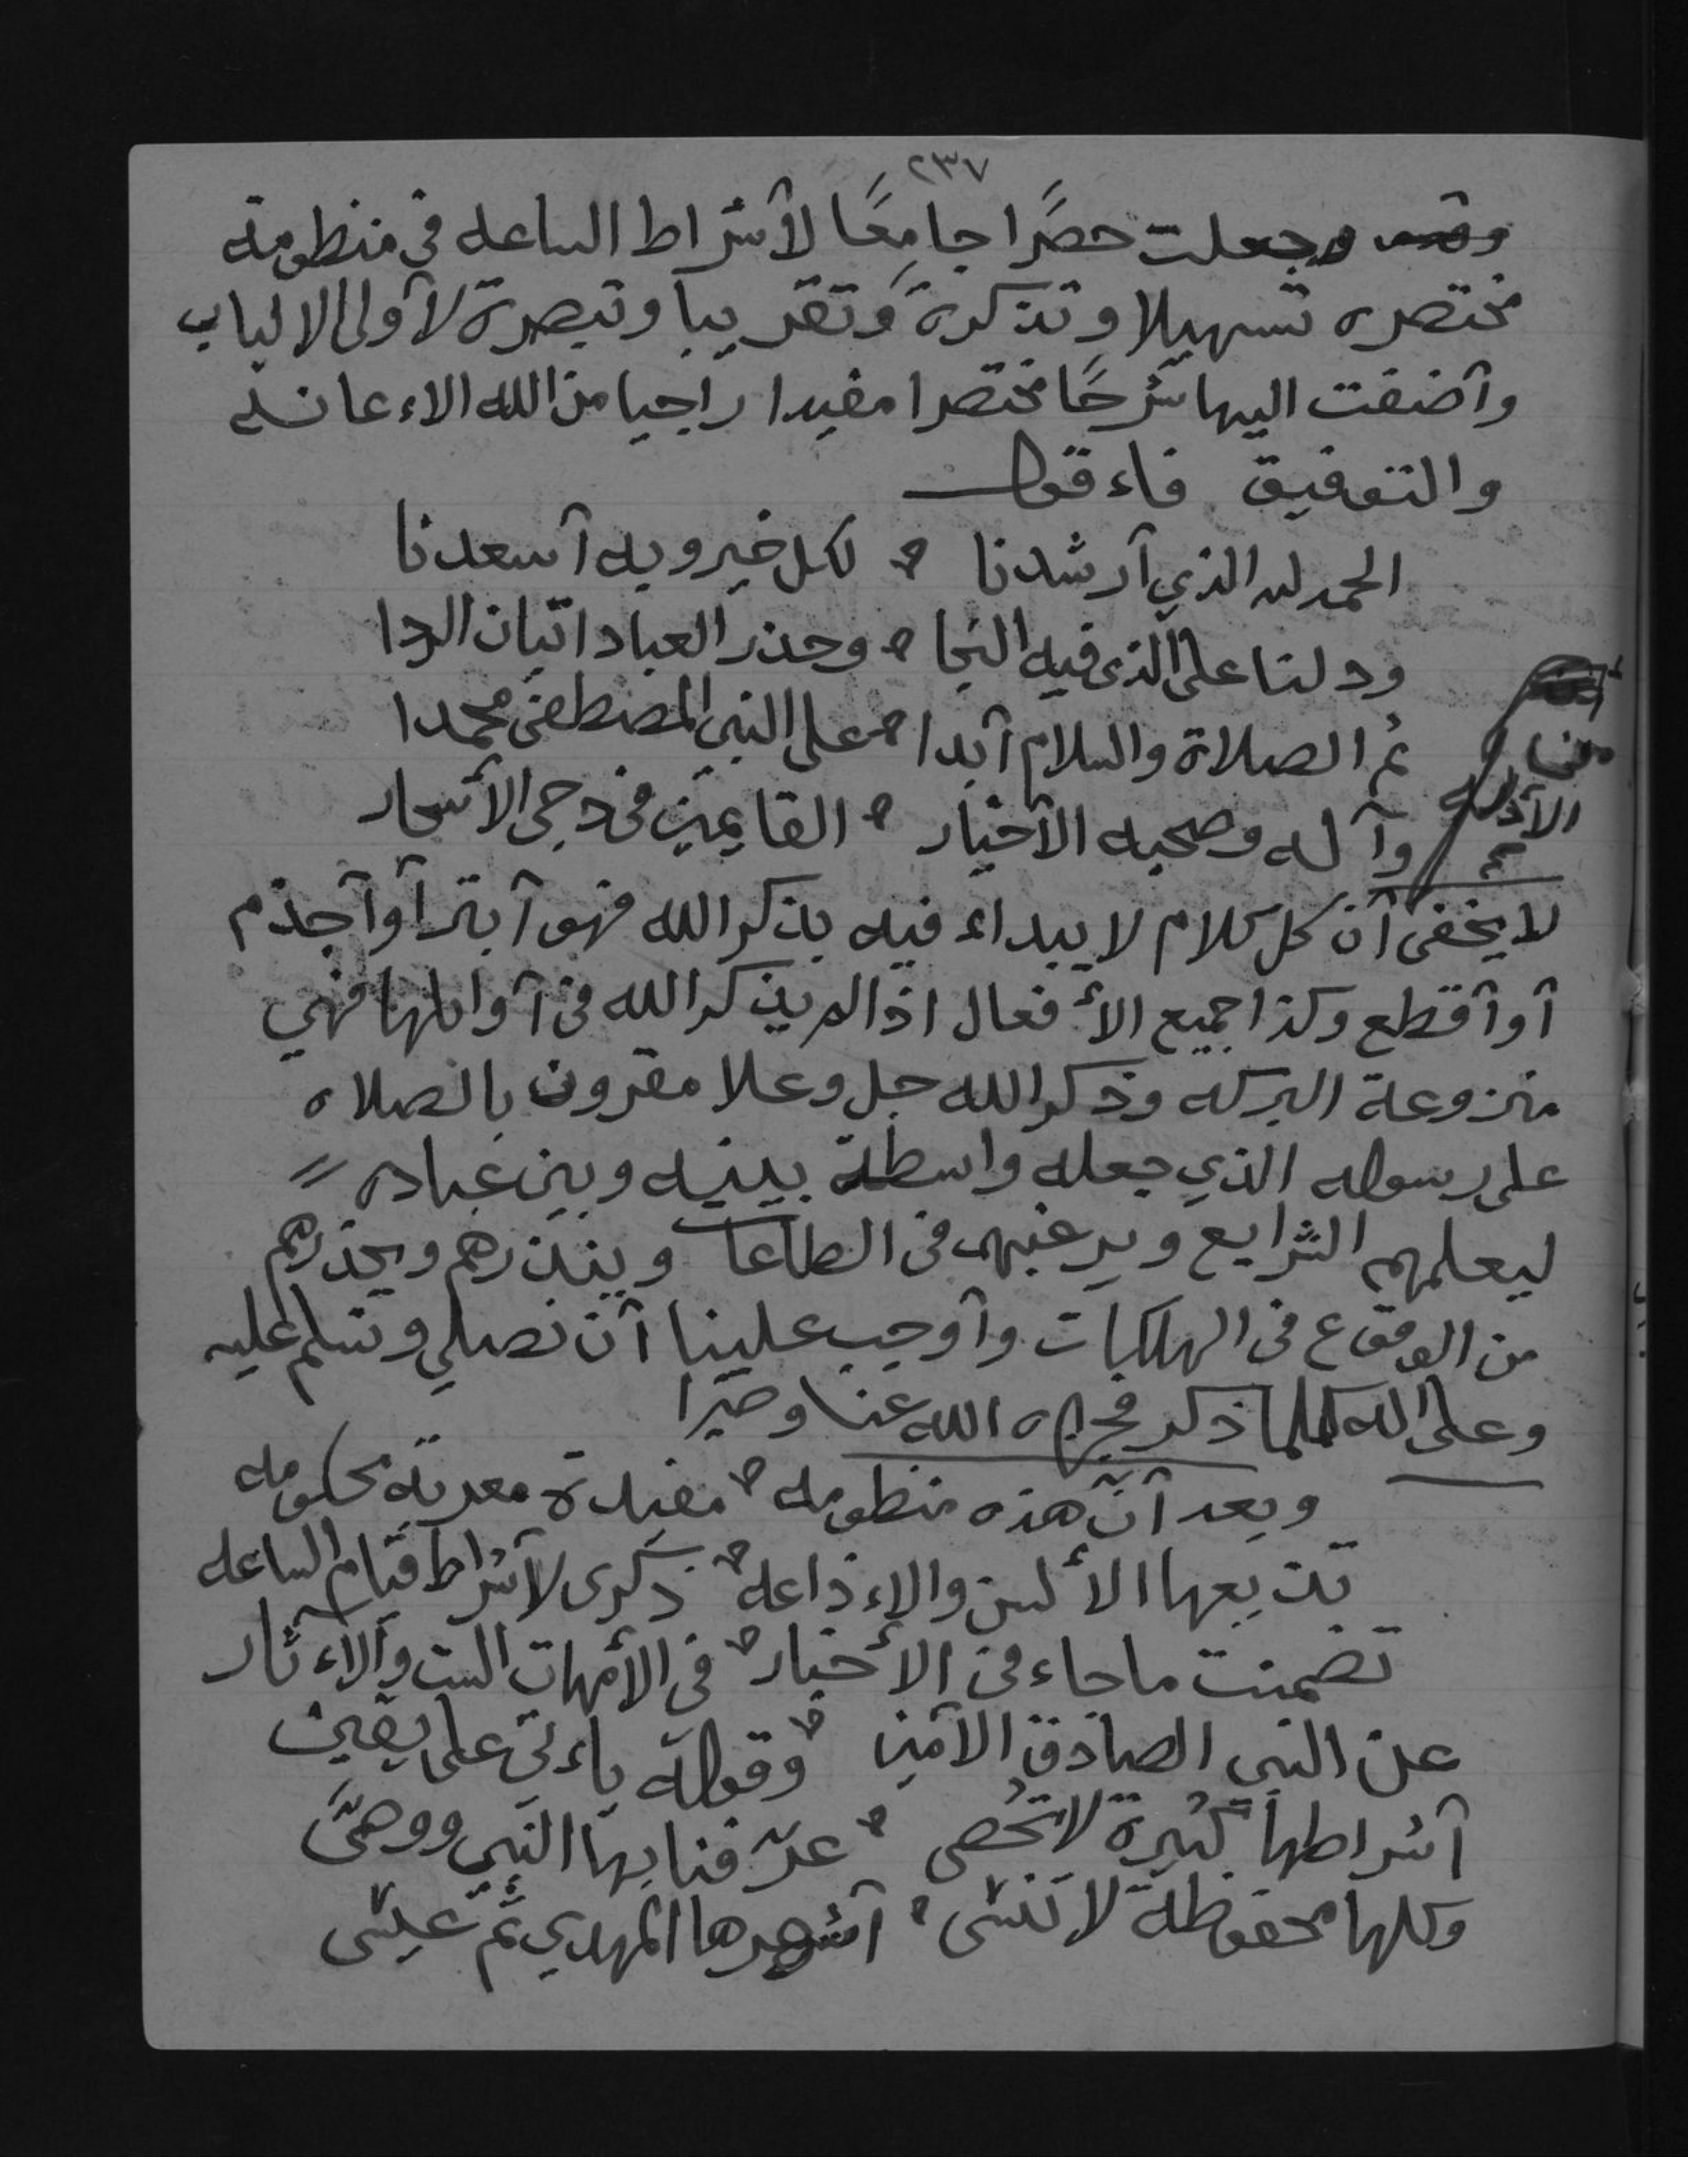 ٢٣٧
وجعلت حصرًا جامعًا لأشراط الساعه فى منظومة
مختصره تسهيلا وتذكرة وتقريبا وتبصرة لأولى الالباب
وأضفت اليها شرحًا مختصرا مفيدا راجيا من الله الاءعانه
والتوفيق فاءقول
الحمد لله الذي أرشدنا لكل خير وبه أسعدنا
ودلنا على الذى فيه النجا وحذر العباد اتيان الردا
ثم الصلاة والسلام أبدا على النبي المصطفى محمدا
وآله وصحبه الأخيار القايمين فى دجى الأسحار
من
الأذله
لا يخفى أن كل كلام لا يبداء فيه بذكر الله فهو أبتر أو أجذم
أو أقطع وكذا جميع الأفعال اذا لم يذكر الله فى أوايلها فهي
منزوعة البركه وذكر الله جل وعلا مقرون بالصلاه
على رسوله الذي جعله واسطة بينه وبين عباده
ليعلمهم الشرايع ويرغبهم فى الطاعات وينذرهم ويحذرهم
من الوقوع فى الهلكات وأوجب علينا أن نصلي ونسلم عليه
وعلى اله كلما ذكر فجزاه الله عنا خيرا
وبعد أن هذه منظومه مفيدة معربة محكومه
تذيعها الألسن والاءذاعه ذكرى لأشراط قيام الساعه
تضمنت ما جاء فى الأخبار فى الأمهات الست والاءثار
عن النبي الصادق الأمين وقوله ياءتي على يقين
أشراطها كثيرة لا تحصى عرّفنا بها النبي ووصّى
وكلها محفوظة لا تنسى أشهرها المهدي ثم عيسى